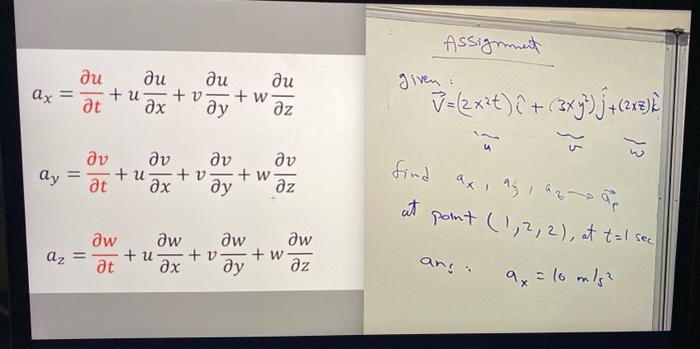 a_x = ∂u/∂t + u ∂u/∂x + v ∂u/∂y + w ∂u/∂z
a_y = ∂v/∂t + u ∂v/∂x + v ∂v/∂y + w ∂v/∂z
a_z = ∂w/∂t + u ∂w/∂x + v ∂w/∂y + w ∂w/∂z
Assignment
given :
V⃗ = (2x²t) î + (3xy²) ĵ + (2xz) k̂
u v w
find a_x, a_y, a_z → a⃗_p
at point (1,2,2), at t=1 sec
ans : a_x = 10 m/s²